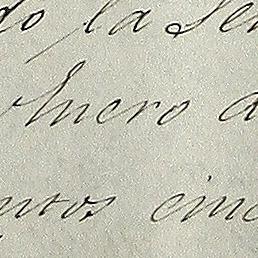 do, la Se
Enero d
ntos cinc